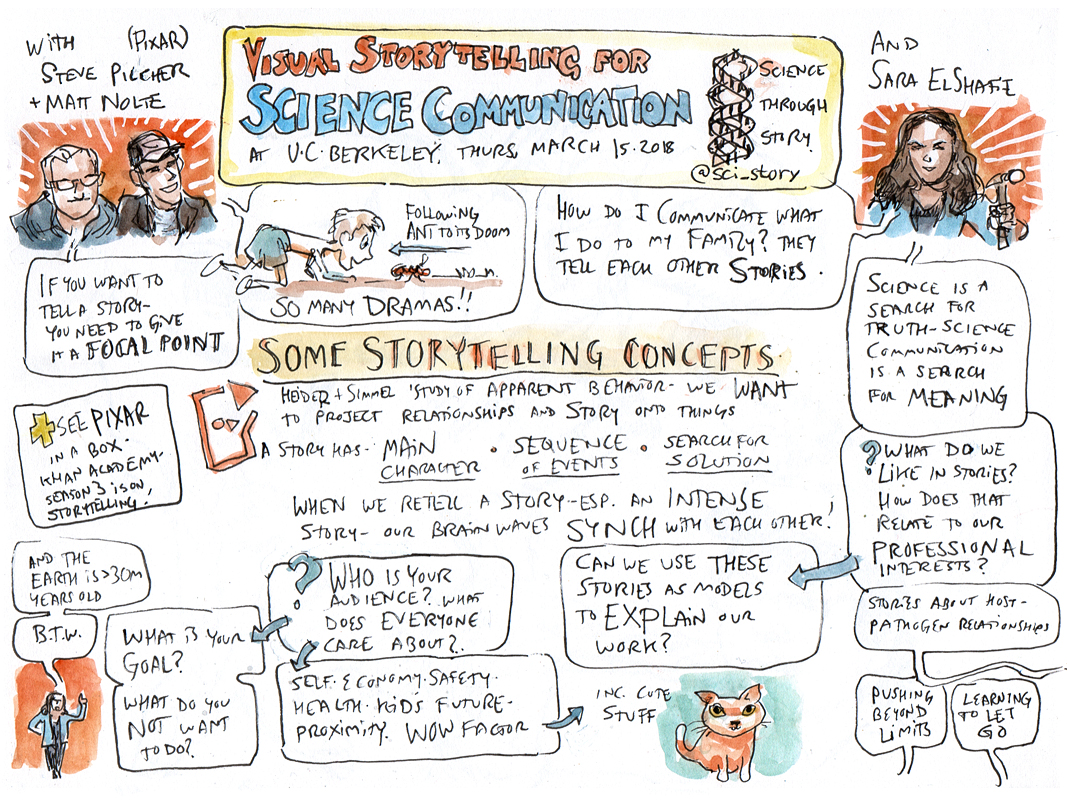 WITH (PIXAR)
STEVE PILCHER
+ MATT NOLTE
VISUAL STORYTELLING FOR
SCIENCE COMMUNICATION
AT U.C. BERKELEY, THURS, MARCH 15. 2018
SCIENCE
THROUGH
STORY
@sci_story
AND
SARA ELSHAFIE
IF YOU WANT TO
TELL A STORY-
YOU NEED TO GIVE
IT A FOCAL POINT
FOLLOWING
ANT TO ITS DOOM
SO MANY DRAMAS!!
HOW DO I COMMUNICATE WHAT
I DO TO MY FAMILY? THEY
TELL EACH OTHER STORIES.
SCIENCE IS A
SEARCH FOR
TRUTH-SCIENCE
COMMUNICATION
IS A SEARCH
FOR MEANING
SOME STORYTELLING CONCEPTS.
HEIDER + SIMMEL 'STUDY OF APPARENT BEHAVIOR- WE WANT
TO PROJECT RELATIONSHIPS AND STORY ONTO THINGS
A STORY HAS- MAIN CHARACTER • SEQUENCE OF EVENTS • SEARCH FOR SOLUTION
WHEN WE RETELL A STORY-ESP. AN INTENSE
STORY- OUR BRAIN WAVES SYNCH WITH EACH OTHER!
+ SEE PIXAR
IN A BOX-
KHAN ACADEMY-
SEASON 3 IS ON
STORYTELLING!
? WHAT DO WE
LIKE IN STORIES?
HOW DOES THAT
RELATE TO OUR
PROFESSIONAL
INTERESTS?
CAN WE USE THESE
STORIES AS MODELS
TO EXPLAIN OUR
WORK?
STORIES ABOUT HOST-
PATHOGEN RELATIONSHIPS
PUSHING
BEYOND
LIMITS
LEARNING
TO LET
GO
AND THE
EARTH IS >30M
YEARS OLD
B.T.W.
? WHO IS YOUR
AUDIENCE? WHAT
DOES EVERYONE
CARE ABOUT?
WHAT IS YOUR
GOAL?
WHAT DO YOU
NOT WANT
TO DO?
SELF · ECONOMY · SAFETY ·
HEALTH · KID'S FUTURE-
PROXIMITY. WOW FACTOR
INC. CUTE
STUFF